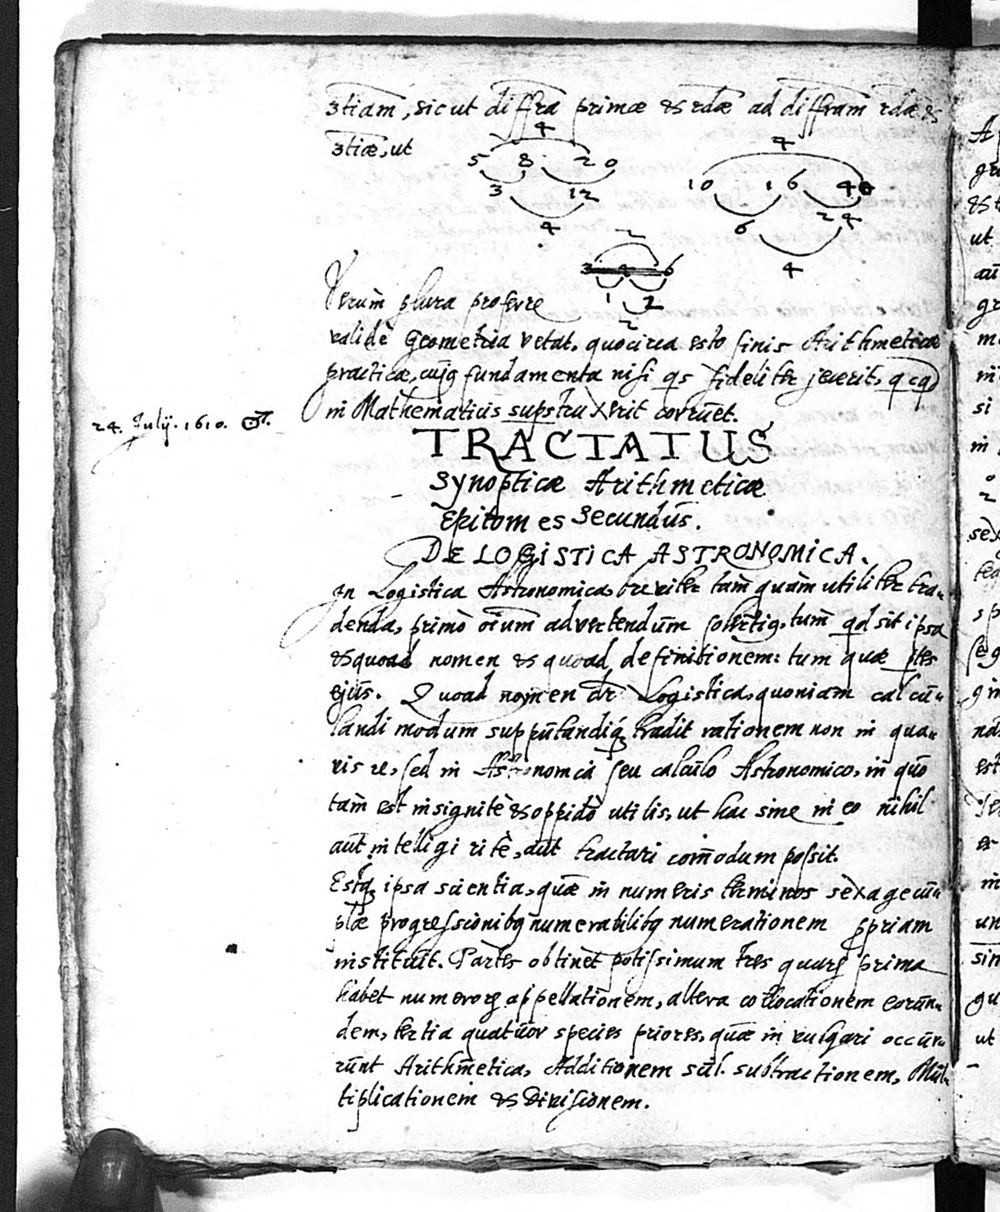 3tiam, sicut diffra primæ & 2dæ ad diffram 2dæ &
3tiæ, ut
4
5 8 20
3 12
4
4
10 16 40
6 24
4
2
3 4 6
1 2
2
Verùm plura proferre
validè Geometria vetat, quocirca esto finis Arithmeticæ
practicæ, cujq fundamenta nisi qs fideliter jecerit, qcqd
in Mathematicis supstruxerit corruet.
24. Julij. 1610. ♂.
TRACTATUS
Synopticæ Arithmeticæ
Epitomes Secundus.
DE LOGISTICA ASTRONOMICA.
In Logistica Astronomica, breviter tam quàm utiliter tra-
denda, primò oium advertendum tum qd sit ipsa
& quoad nomen & quoad definitionem: tum quæ ptes
ejus. Quoad nomen dr Logistica, quoniam calcu-
landi modum supputandiq tradit rationem non in qua-
vis re, sed in Astronomia seu calculo Astronomico, in quo
tam est insignitè & oppidò utilis, ut hac sine in eo nihil
aut intelligi ritè, aut tractari commodum possit.
Estq ipsa scientia, quæ in numeris terminos sexagecu-
plæ progressionibq numerabilibq numerationem ppriam
instituit. Partes obtinet potissimum tres quarq prima
habet numerorq appellationem, altera collocationem eorun-
dem, tertia quatuor species priores, quæ in vulgari occur-
runt Arithmetica, Additionem scil. subtractionem, Mul-
tiplicationem & Divisionem.